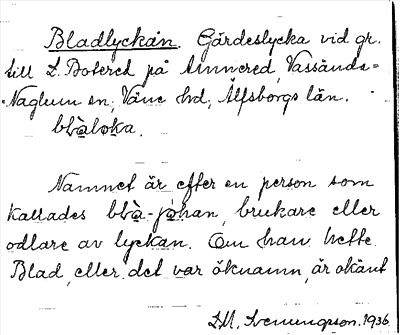 Bladlyckan. Gärdeslycka vid gr.
till L. Botered på Önnered, Vassända-
Naglum sn, Väne hd, Älfsborgs län.
bla̱loka.
Namnet är efter en person som
kallades bla̱-jo̱han, brukare eller
odlare av lyckan. Om han hette
Blad, eller det var öknamn, är okänt
L.M. Svenungson. 1936